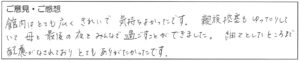 ご意見・ご感想
館内はとても広く きれいで 気持ちよかったです。 親族控室もゆったりして
いて 母と最後の夜をみんなで過ごすことができました。 細々としたところまで
配慮がなされており とてもありがたかったです。